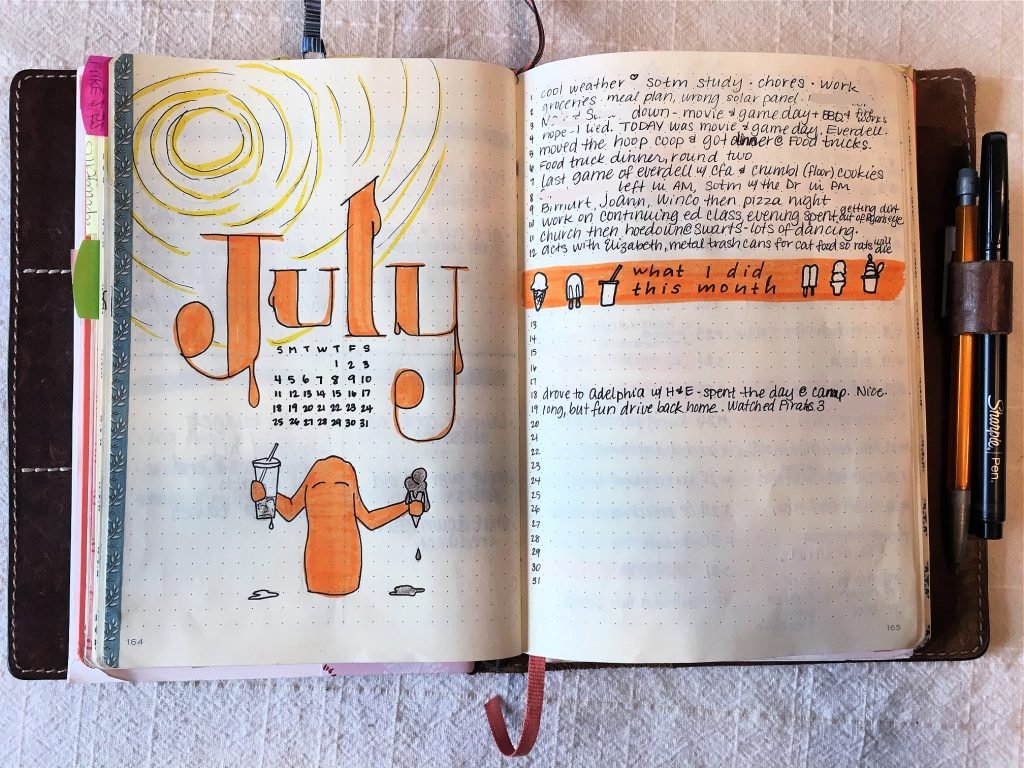 July
S M T W T F S
1 2 3
4 5 6 7 8 9 10
11 12 13 14 15 16 17
18 19 20 21 22 23 24
25 26 27 28 29 30 31
164
1 cool weather sotm study · chores · work
2 groceries · meal plan, wrong solar panel ·
3 down - movie & game day + BBQ & fire works
4 nope - I lied. TODAY was movie & game day. Everdell.
5 moved the hoop coop & got dinner @ Food trucks.
6 Food truck dinner, round two
7 last game of everdell w/ cfa & crumbl (floor) cookies
8 left in AM, sotm w/ the Dr in PM
9 Bimart, JoAnn, WinCo then pizza night
10 work on continuing ed class, evening spent getting dirt out of eye
11 church then hoedown@ Swarts - lots of dancing.
12 acts with Elizabeth, metal trash cans for cat food so rats will die
what I did
this month
13
14
15
16
17
18 drove to Adelphia w/ H&E - spent the day @ camp. Nice.
19 long, but fun drive back home. Watched Pirates 3
20
21
22
23
24
25
26
27
28
29
30
31
165
Sharpie Pen.